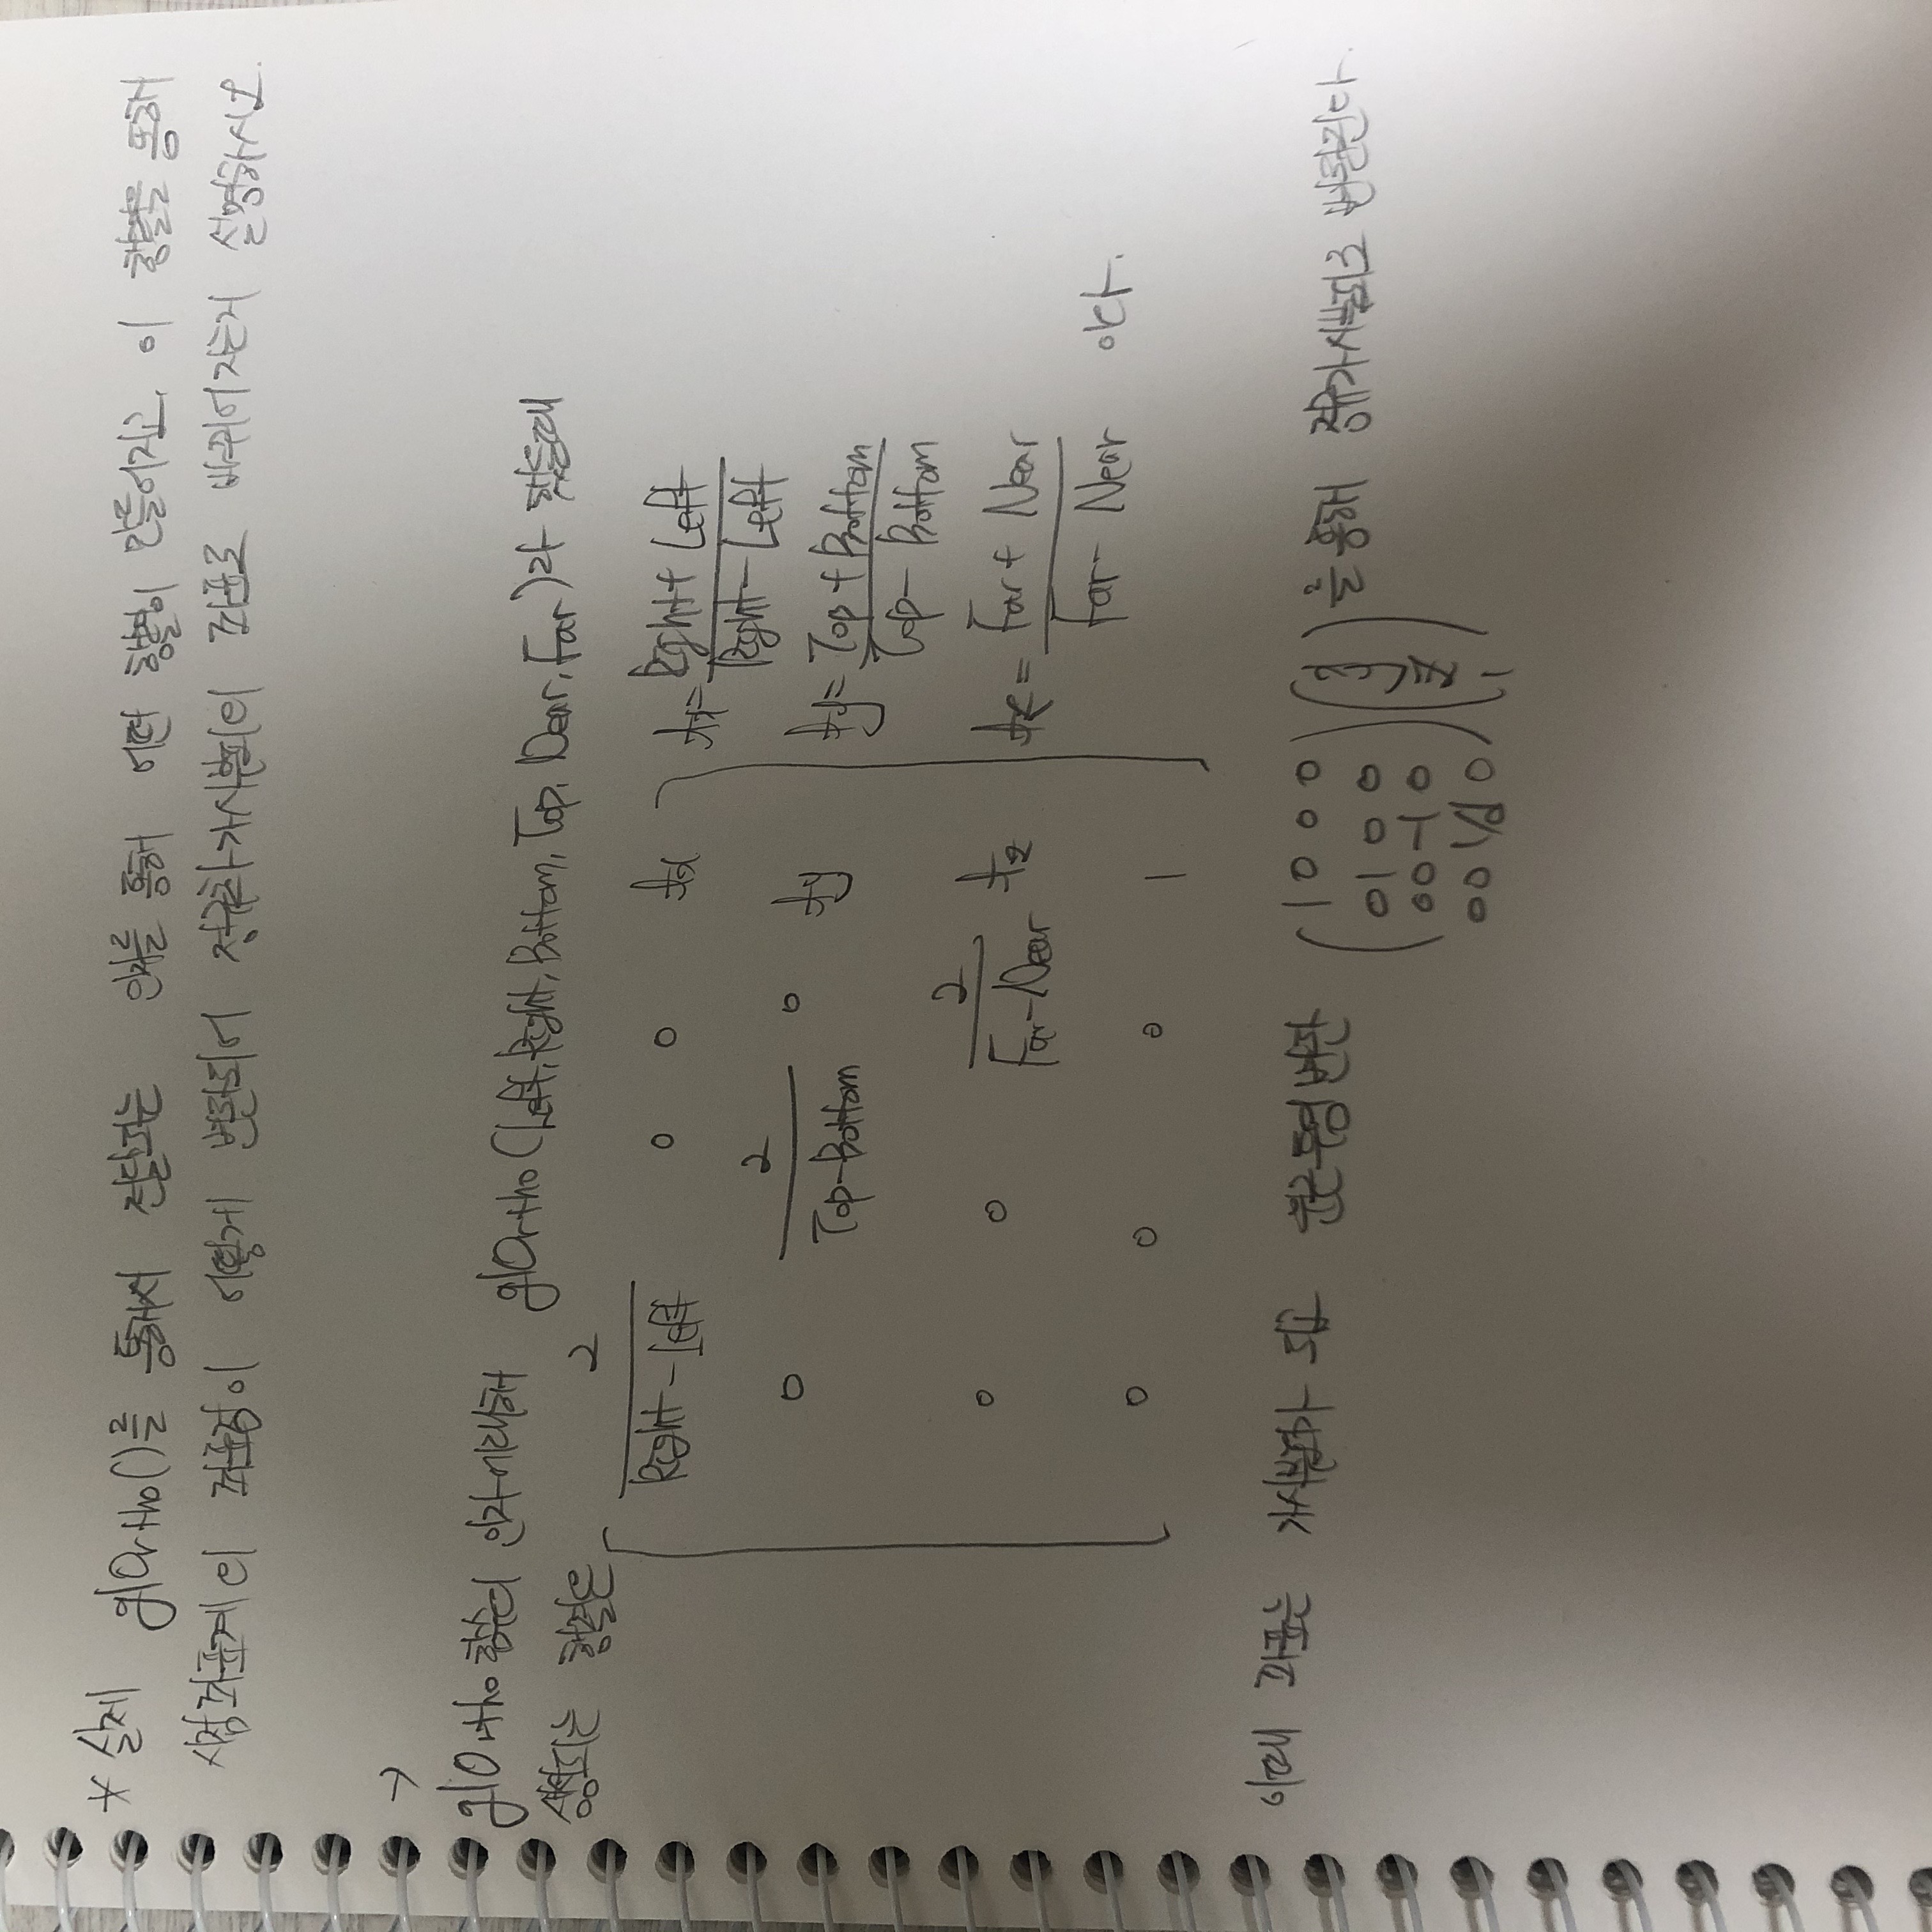 * 실제 glOrtho()를 통해서 전달되는 인자를 통해 어떤 행렬이 만들어지고, 이 행렬을 통해
시점좌표계의 좌표점이 어떻게 변환되어 정규화가시부피의 좌표로 바뀌어지는지 설명하시오.
→
glOrtho 함수의 인자에대해 glOrtho(Left, Right, Bottom, Top, Near, Far)라 했을때
생성되는 행렬은
2/(Right-Left) 0 0 tx
0 2/(Top-Bottom) 0 ty
0 0 2/(Far-Near) tz
0 0 0 1
tx= (Right+Left)/(Right-Left)
ty= (Top+Bottom)/(Top-Bottom)
tz= (Far+Near)/(Far-Near) 이다.
이때 좌표는 가시부피가 되고 원근투영변환 (1 0 0 0 / 0 1 0 0 / 0 0 -1 0 / 0 0 1/d 0) (x y z 1) 을 통해 정규가시부피로 변환된다.